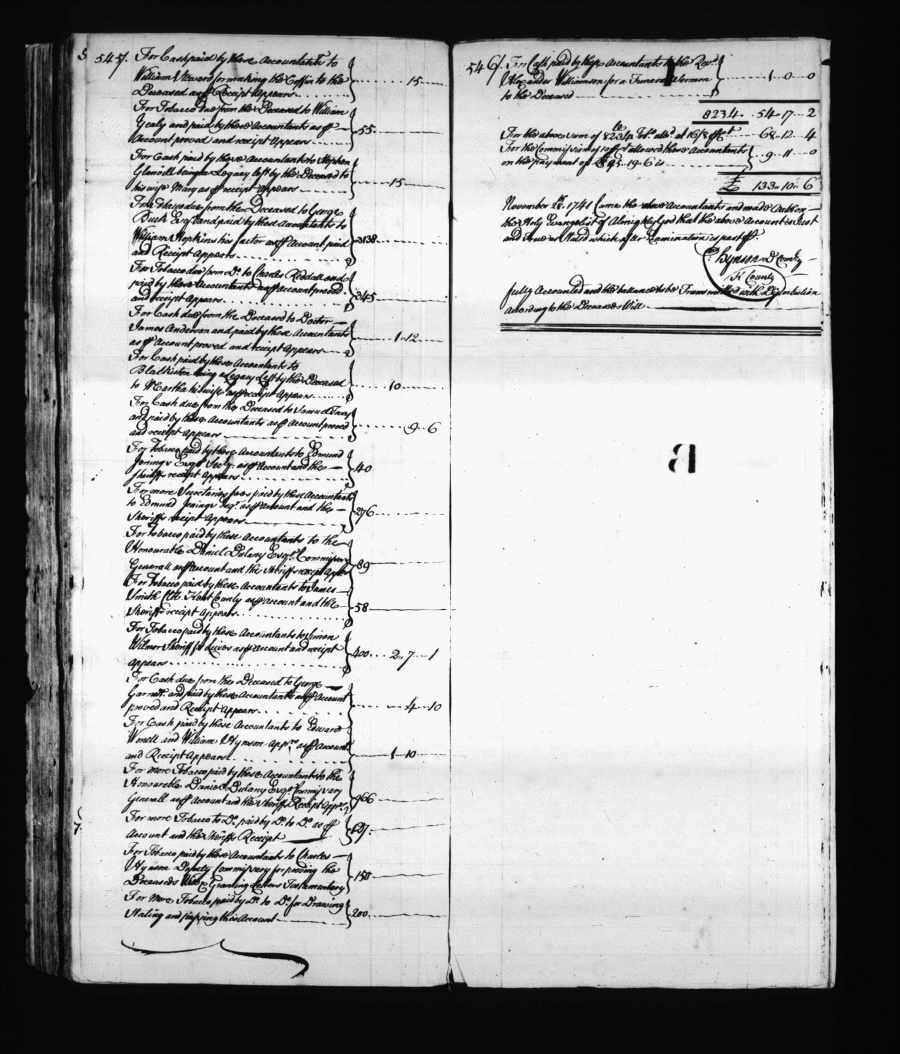 545
For Cash paid by these Accountants to
William Steward for making the Coffin to the
Deceased as Receipt Appears
15
For Tobacco due from the Deceased to William
and paid by these Accountants as
Account proved and receipt Appears
55
For Cash paid by these Accountants to Stephen
being a Legacy left by the Deceased to
his wife Mary as receipt Appears
15
For Tobacco due from the Deceased to George
Buck Esqr and paid by these Accountants to
William Hopkins his factor as Account paid
and Receipt Appears
3138
For Tobacco due from Do to Charles and
paid by these Accountants as account proved
and receipt Appears
245
For Cash due from the Deceased to Doctor
James Anderson and paid by these Accountants
as Account proved and receipt Appears
1 12
For Cash paid by these Accountants to
Blackiston being a Legacy Left by the Deceased
to Martha his wife as receipt Appears
10
For Cash due from the Deceased to Samuel
and paid by these Accountants as Account proved
and receipt Appears
9 6
For Tobacco paid by these Accountants to Edmund
Jenings Esqr Secry as account and the
Sheriffs receipt Appears
40
For more Secretaries fees paid by these Accountants
to Edmund Jenings Esqr as account and the
Sheriffs receipt Appears
276
For Tobacco paid by these Accountants to the
Honourable Daniel Dulany Esqr Commissary
Generall as Account and the Sheriffs receipt Appears
89
For Tobacco paid by these Accountants to James
Smith Kent County as Account and the
Sheriffs receipt Appears
58
For Tobacco paid by these Accountants to Simon
Wilmer Sheriff for as Account and receipt
Appears
400 2 7 1
For Cash due from the Deceased to George
Garnett and paid by these Accountants as Account
proved and Receipt Appears
4 10
For Cash paid by these Accountants to Edward
Worrell and William Hynson Apprs as Account
and Receipt Appears
1 10
For more Tobacco paid by these Accountants to the
Honourable Daniel Dulany Esqr Commissary
Generall as Account and the Sheriffs Receipt Appears
966
For more Tobacco to Do paid by Do to Do as
Account and the Sheriffs Receipt
427
For Tobacco paid by these Accountants to Charles
Hynson Deputy Commissary for proving the
Deceaseds Will Granting Letters Testamentary
150
For More Tobacco paid by Do to Do for Drawing
Stating and passing this Account
200
546
For Cash paid by these Accountants to the Revd
Alexander Williamson for a Funeral Sermon
to the Deceased
1 0 0
8234 54 17 2
For the above sum of 8234 lbs Tobo at 16/8
68 12 4
For the Commissions 10 allowed these Accountants
on the payment of £95 19 6 is
9 11 0
£ 133 10 6
November 28 1741 Came the above Accountants and made Oath on
the Holy Evangelist of Almighty God that the above Account is Just
and True as Stated which after Examination is past
Hynson D Comry
Kt County
fully Accounted and the ballance to be Transmitted with Distribution
According to the Deceaseds Will
B